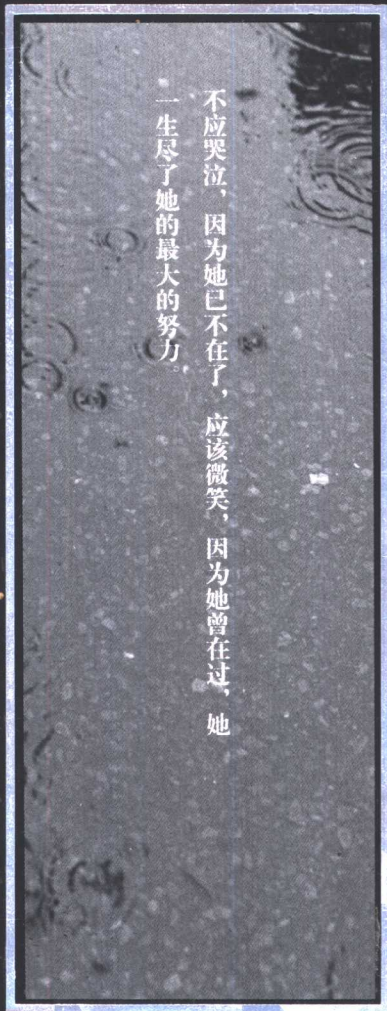 不应哭泣，因为她已不在了，应该微笑，因为她曾在过，她
一生尽了她的最大的努力。